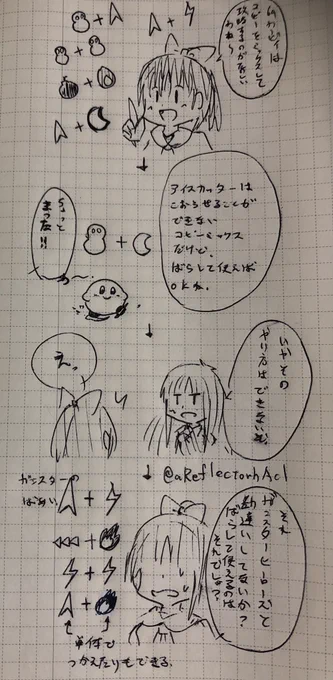 コピーをミックスして
攻略するのが楽しい
わね〜
アイスカッターは
こおらせることが
できない
コピーミックス
だけど、
ばらして使えば
OKね。
ちょっと
まった!!
いやその
やり方はできないぞ
えっ
@aReflectorhAcl
それ
ガンスターヒーローズと
勘違いしてないか?
ばらして使えるのは
そっちでしょ?
ガンスターの
ばあい
単体で
つかえたりもできる。